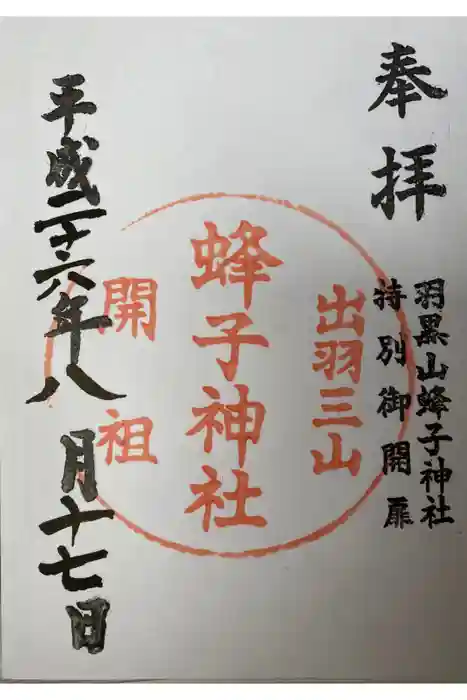 奉拝
羽黒山蜂子神社
特別御開扉
出羽三山
蜂子神社
開祖
平成二十六年八月十七日